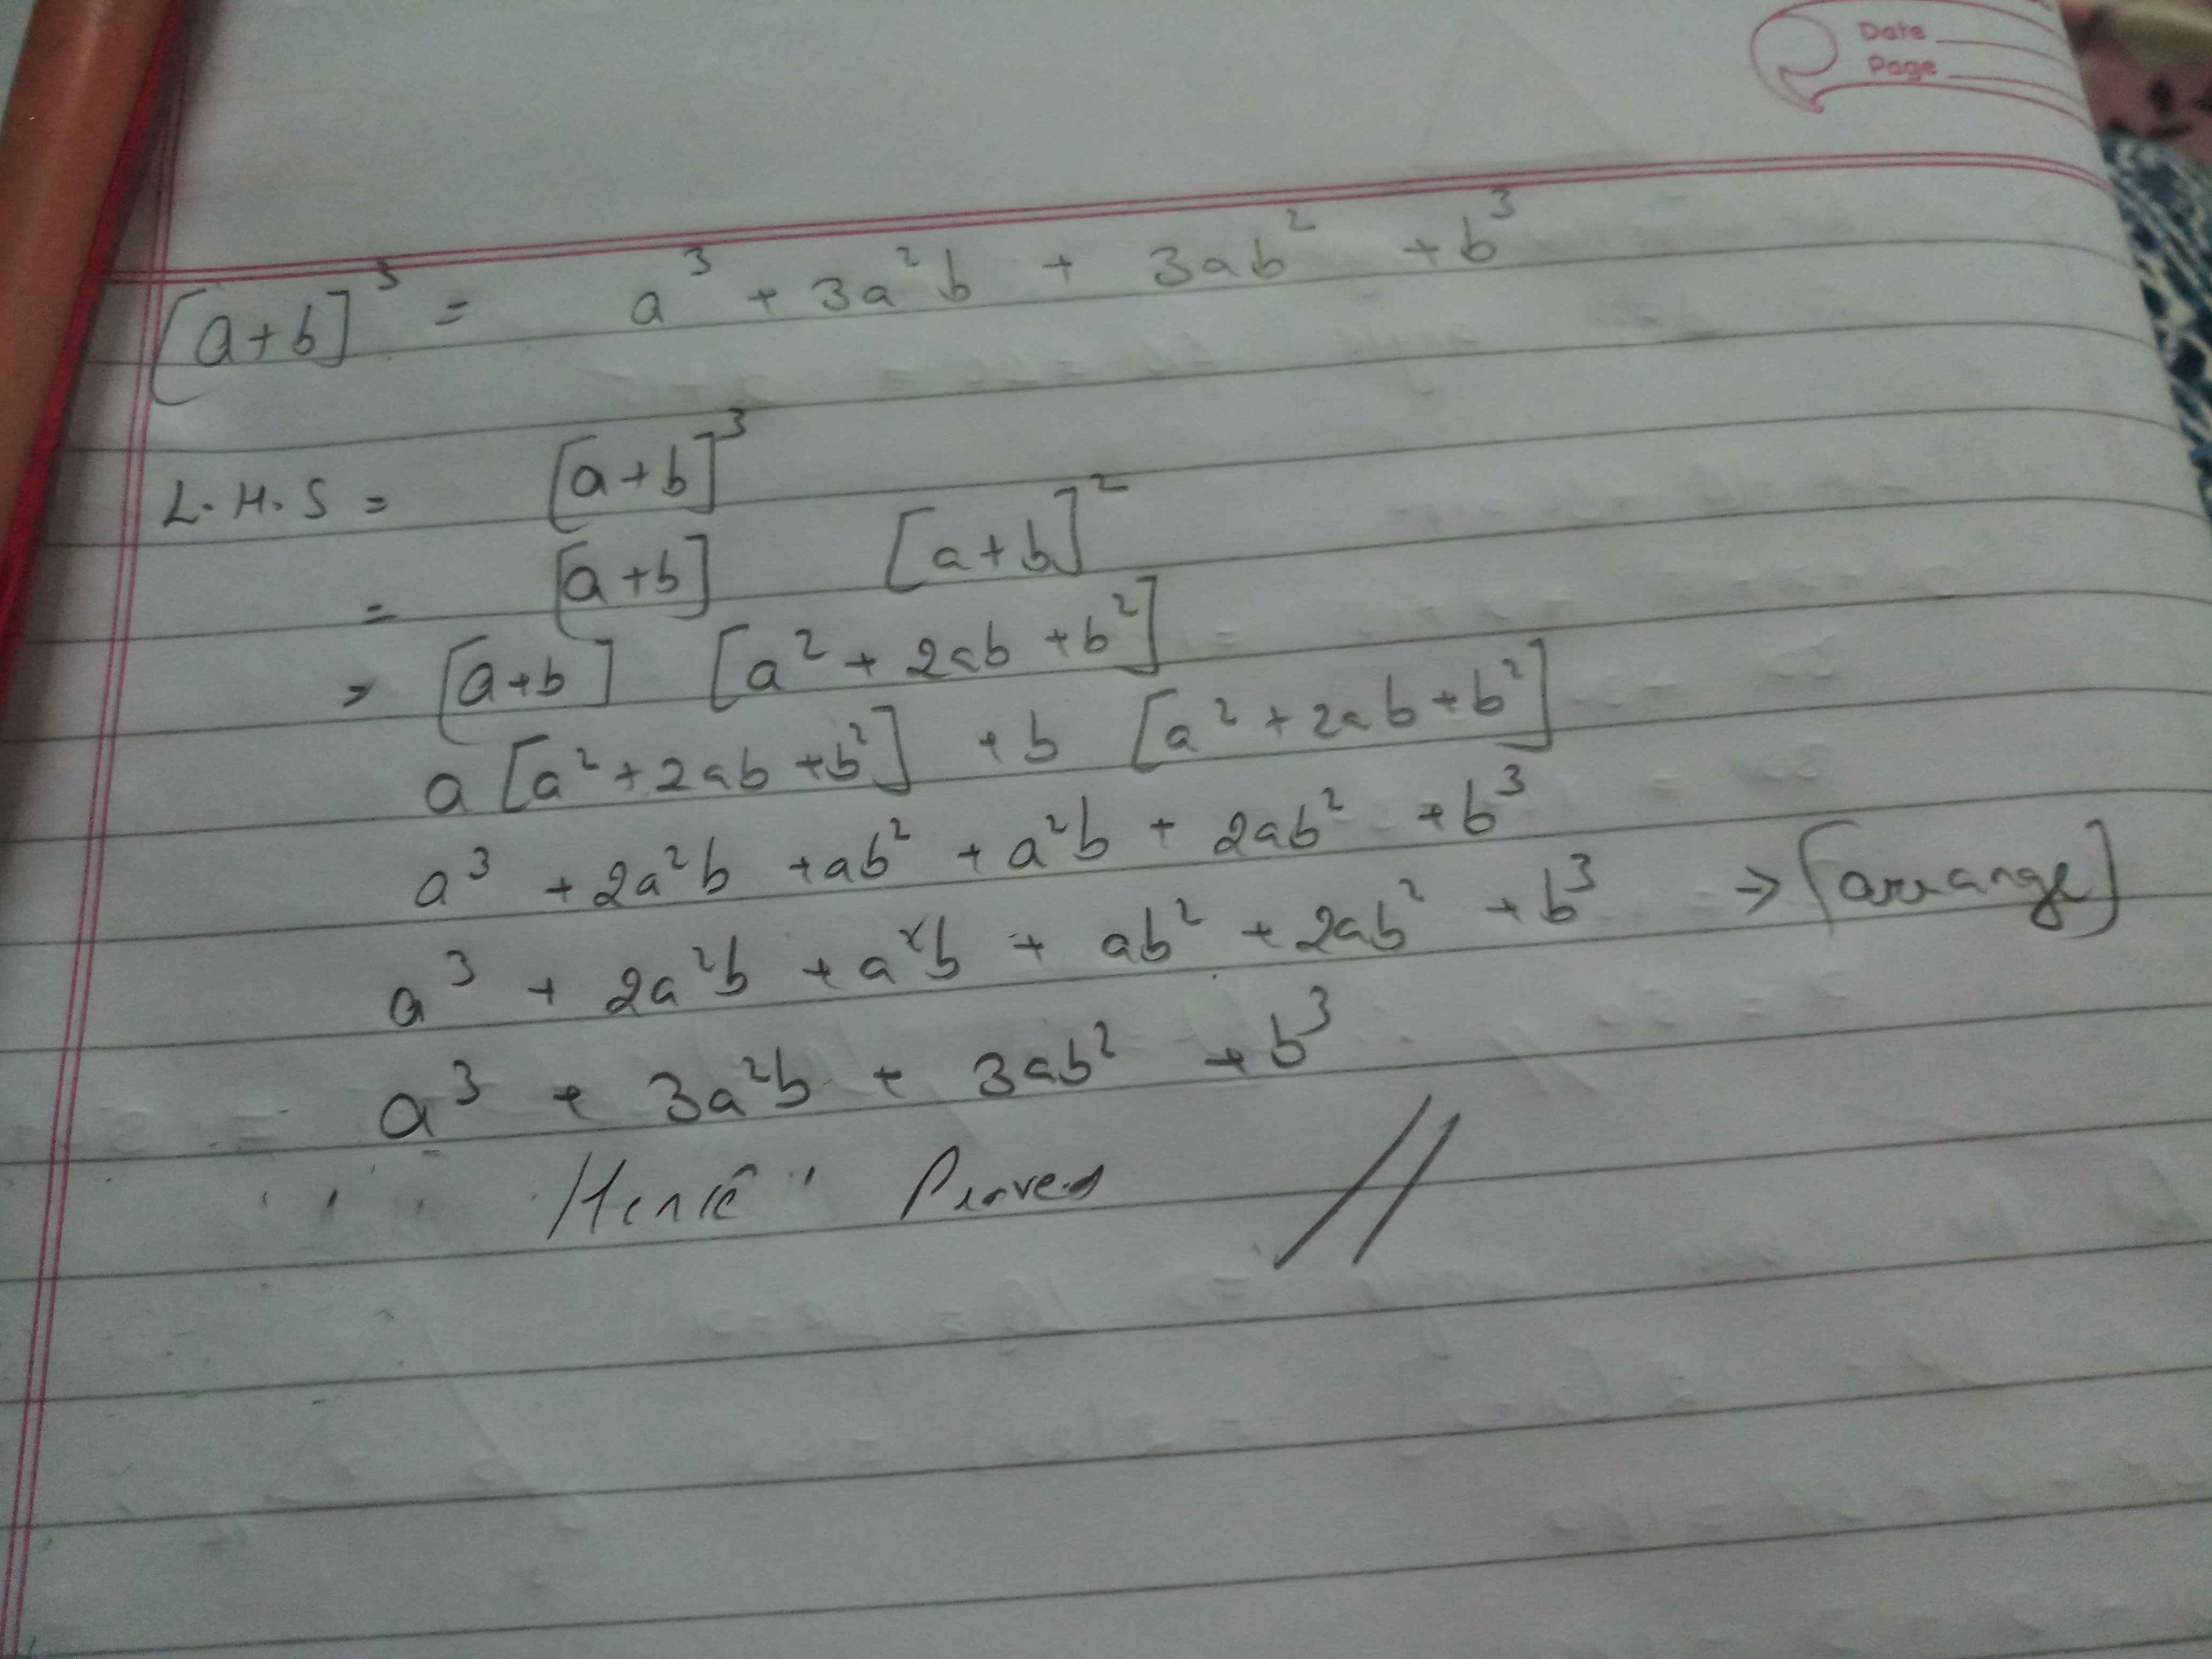 Date
Page
[a+b]³ = a³ + 3a²b + 3ab² + b³
L.H.S = [a+b]³
= [a+b] [a+b]²
= [a+b] [a² + 2ab + b²]
a [a² + 2ab + b²] + b [a² + 2ab + b²]
a³ + 2a²b + ab² + a²b + 2ab² + b³
a³ + 2a²b + a²b + ab² + 2ab² + b³ → [arrange]
a³ + 3a²b + 3ab² + b³
Hence Proved //